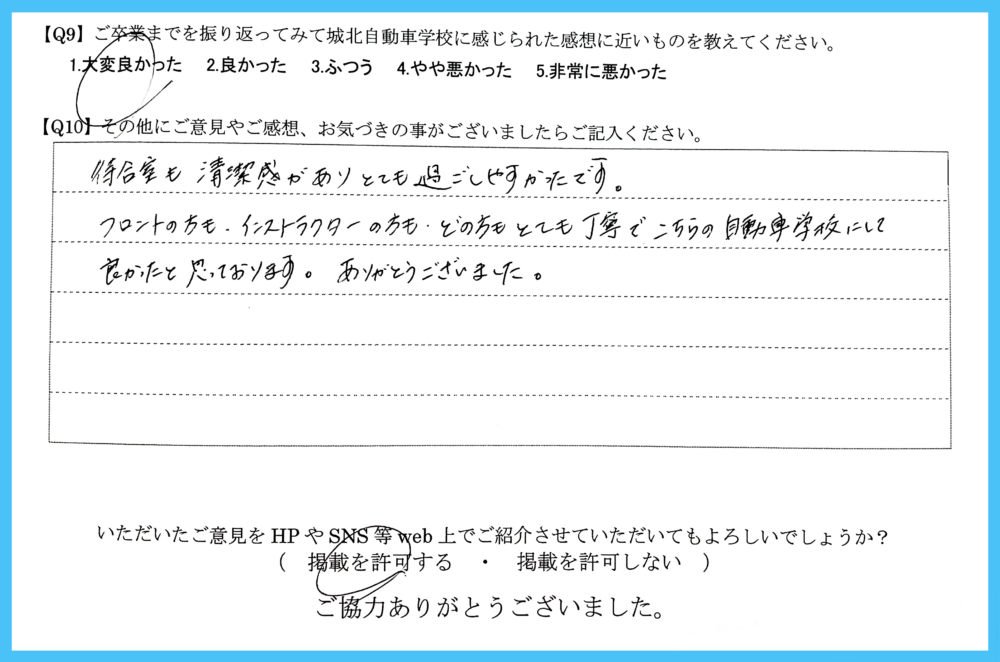 【Q9】ご卒業までを振り返ってみて城北自動車学校に感じられた感想に近いものを教えてください。
1.大変良かった 2.良かった 3.ふつう 4.やや悪かった 5.非常に悪かった
【Q10】その他にご意見やご感想、お気づきの事がございましたらご記入ください。
待合室も清潔感がありとても過ごしやすかったです。
フロントの方も・インストラクターの方も・どの方もとても丁寧でこちらの自動車学校にして
良かったと思っております。ありがとうございました。
いただいたご意見をHPやSNS等web上でご紹介させていただいてもよろしいでしょうか？
（ 掲載を許可する ・ 掲載を許可しない ）
ご協力ありがとうございました。